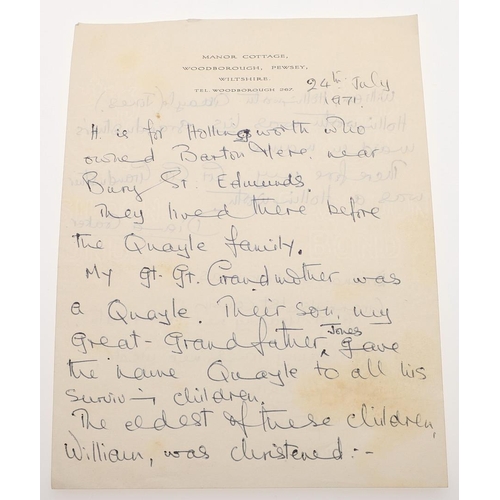 MANOR COTTAGE,
WOODBOROUGH, PEWSEY,
WILTSHIRE
TEL WOODBOROUGH 287.
24th July
1971.
H. is for Hollingsworth who
owned Barton Mere. near
Bury St. Edmunds.
They lived there before
the Quayle family.
My Gt. Gr. Grandmother was
a Quayle. Their son, my
Jones
Great-Grandfather ^ gave
the name Quayle to all his
surviving children.
The eldest of these children,
William, was christened :-